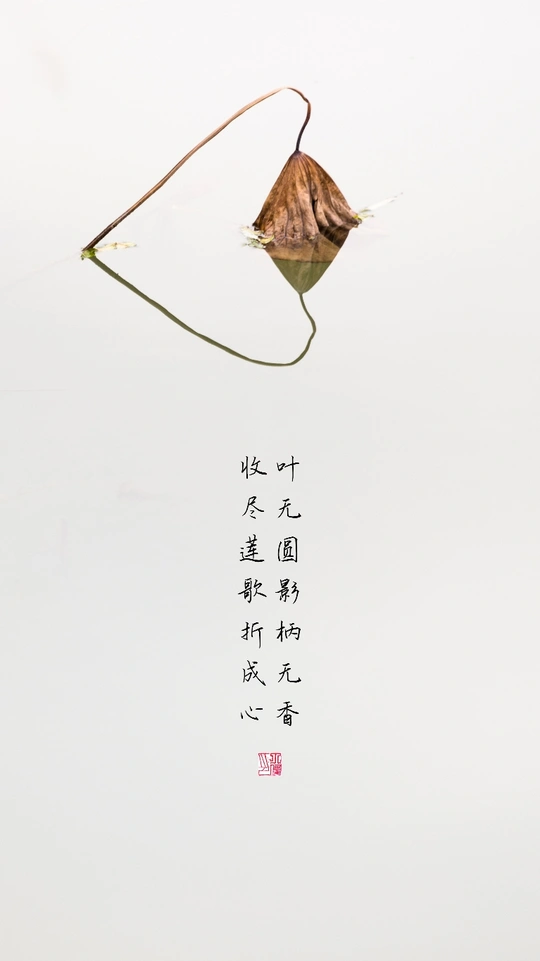 叶无圆影柄无香
收尽莲歌折成心